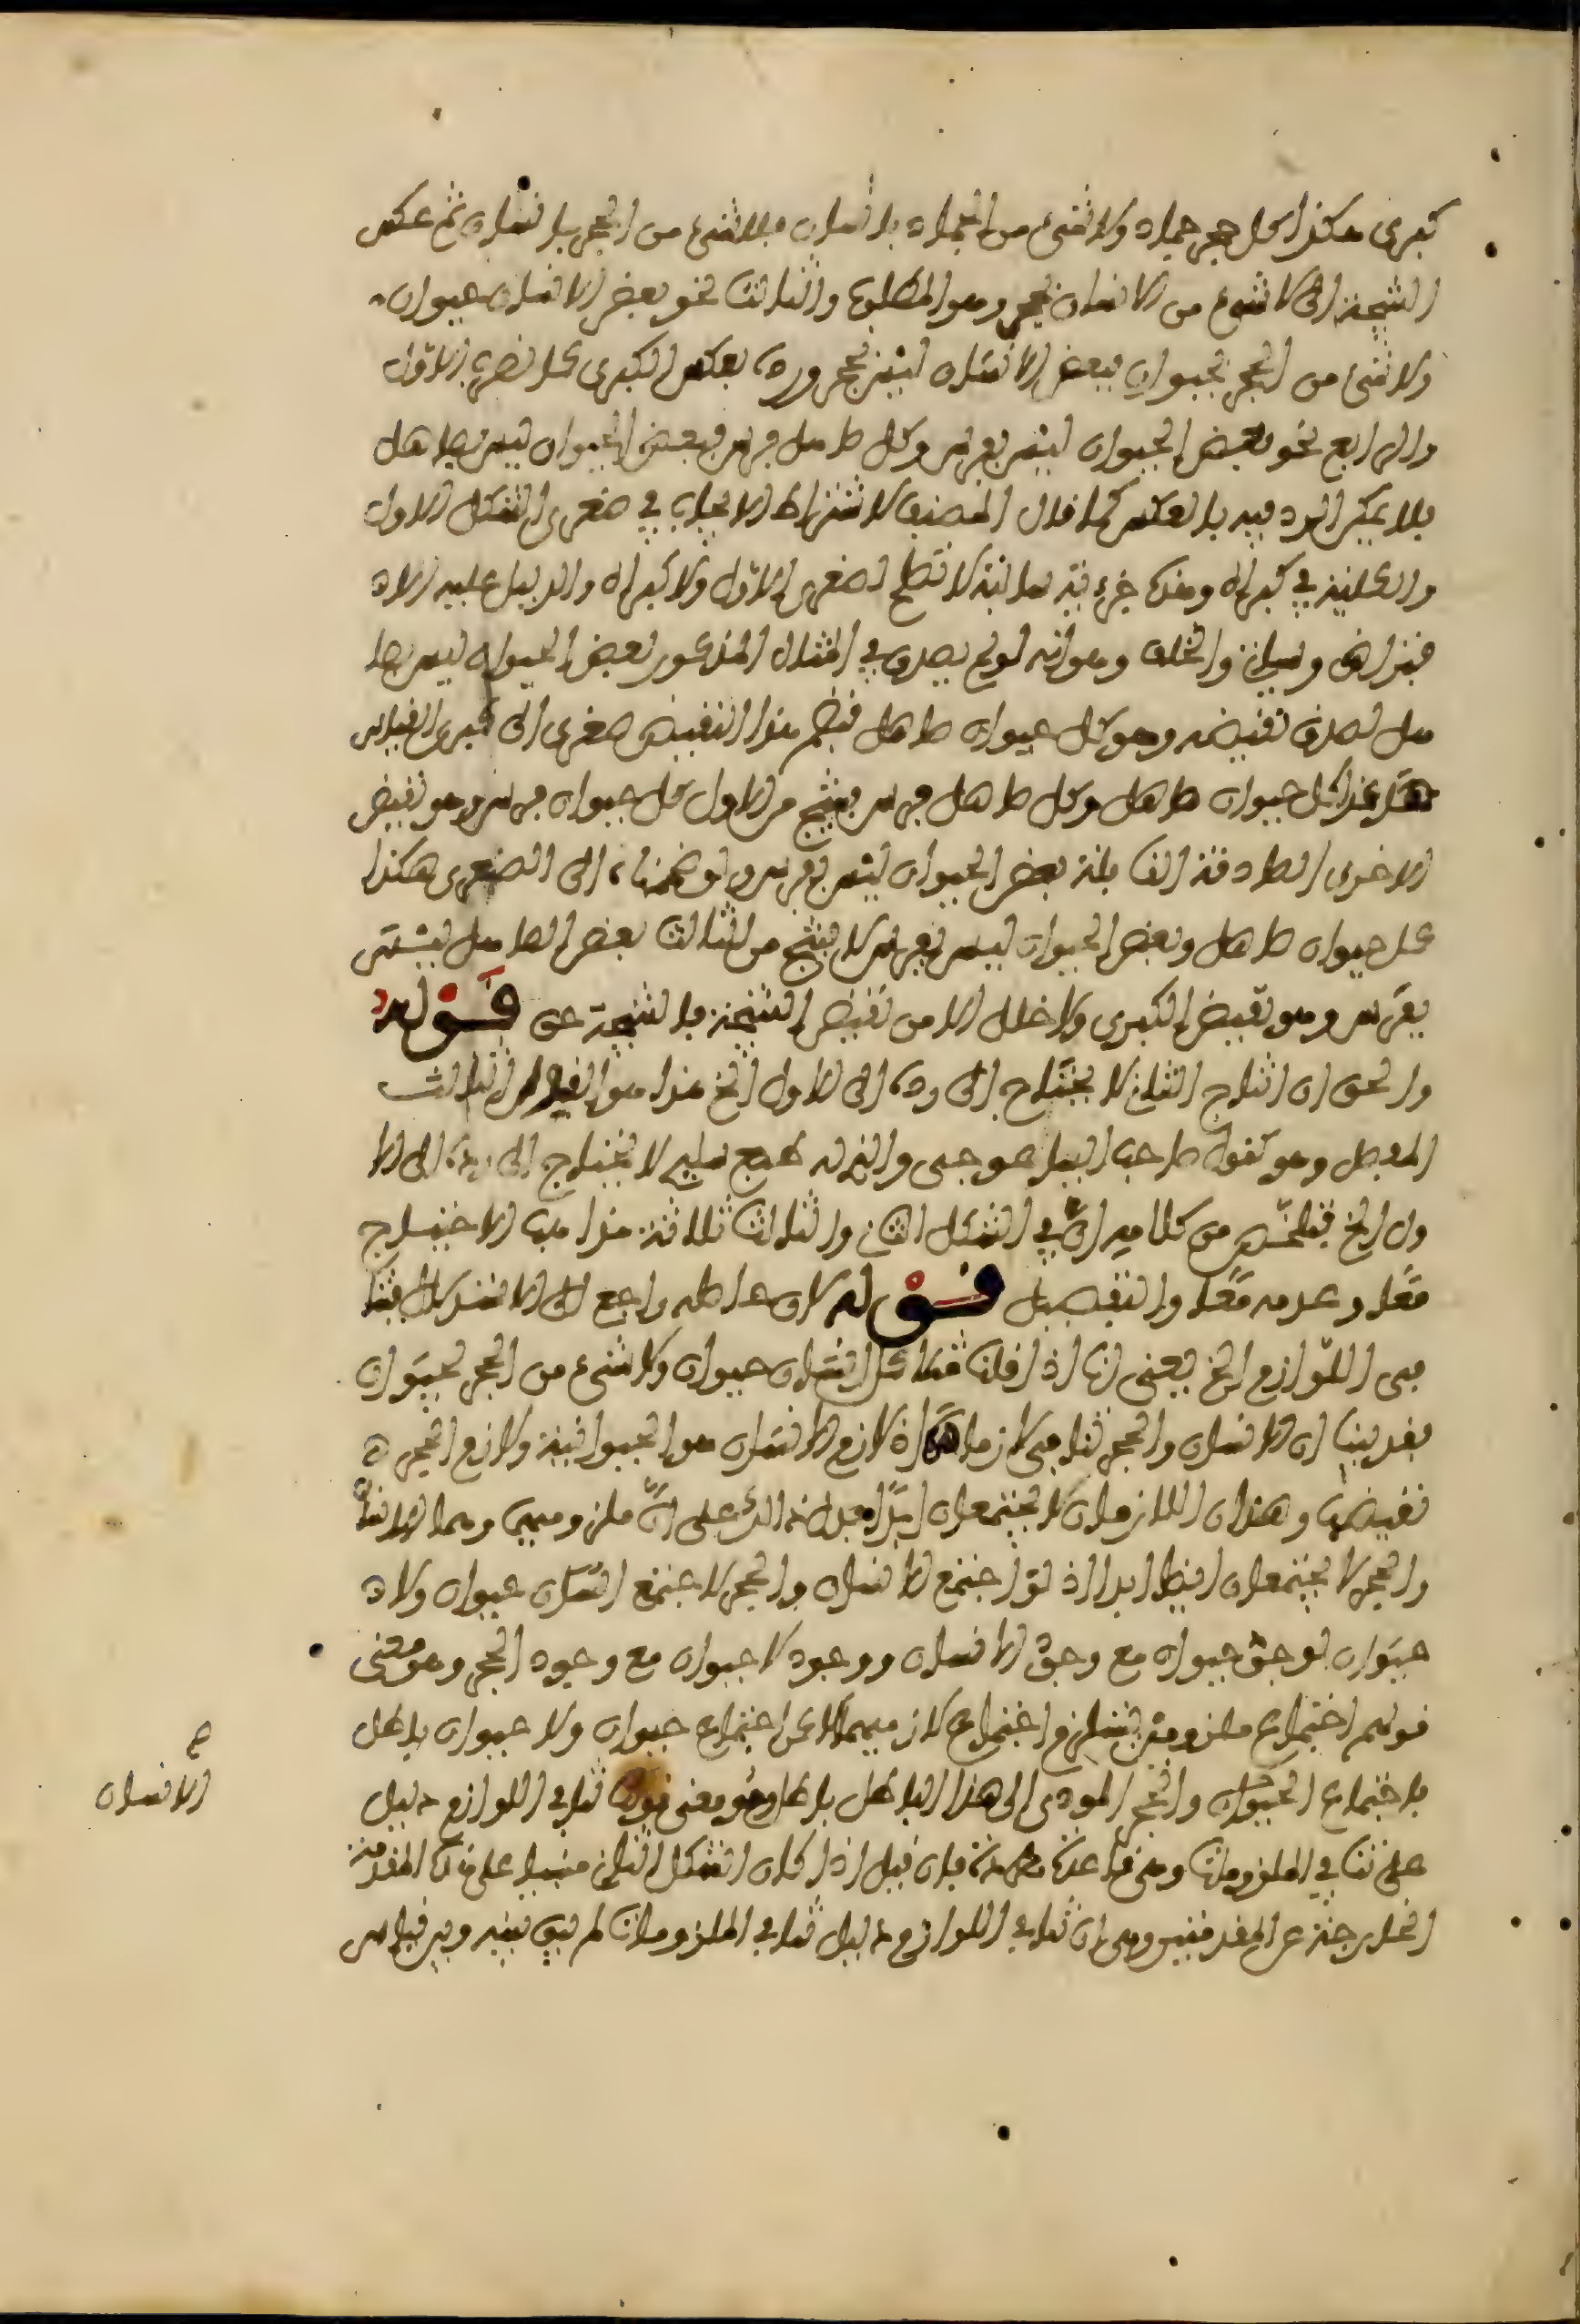 كبرى هكذا كل حجر جماد ولا شيء من الجماد بانسان فلا شيء من الحجر بانسان ثم عكس
النتيجة الى لا شيء من الانسان بحجر وهو المطلوب والثالث نحو بعض الانسان حيوان
ولا شيء من الحجر بحيوان فبعض الانسان ليس بحجر ورده بعكس الكبرى كالضرب الاول
والرابع نحو بعض الحيوان ليس بفرس وكل صاهل فرس فبعض الحيوان ليس بصاهل
فلا يمكن الرد فيه بالعكس كما قال المصنف لاشتراط الايجاب في صغرى الشكل الاول
والكلية في كبراه وهذه جزءية سالبة لا تصلح لصغرى الاول ولا كبراه والدليل عليه الا
فتراض وسياتي والخلف وهو انه لو لم يصدق في المثال المذكور بعض الحيوان ليس بصا
هل لصدق نقيضه وهو كل حيوان صاهل فنضم هذا النقيض صغرى الى كبرى القياس
هكذا كل حيوان صاهل وكل صاهل فرس فينتج من الاول كل حيوان فرس وهو نقيض
الاخرى الصادقة القابلة بعض الحيوان ليس بفرس ولو ضممناه الى الصغرى هكذا
كل حيوان صاهل وبعض الحيوان ليس بفرس لا ينتج من الثالث بعض الصاهل ليس
بفرس وهو نقيض الكبرى ولا خلل الا من نقيض النتيجة فالنتيجة حق قوله
والحق ان انتاج الثاني لا يحتاج الى رده الى الاول الخ هذا هو القياس الثالث
المفصل وهو كقول صاحب البيان هو جسى والنزله طجع سليم لا يحتاج الى رده الى الا
ول الخ فتلخص من كلاميه ان في الشكل الثاني والثالث ثلاثة مذاهب الاحتياج
معا وعدمه معا والتفصيل قوله لان حاصله راجع الى الاستدلال بتنا
في اللوازم الخ يعني انا اذا قلنا مثلا كل انسان حيوان ولا شيء من الحجر بحيوان
فقد بينا ان الانسان والحجر تنافى لازماهما اذ لازم الانسان هو الحيوانية ولازم الحجر
نقيضها وهذان اللازمان لا يجتمعان ابدا فدل ذالك على ان ملزوميهما وهما الانسان
والحجر لا يجتمعان ايضا ابدا اذ لو اجتمع الانسان والحجر لاجتمع انسان حيوان ولا
حيوان لوجود حيوان مع وجود الانسان ووجود لا حيوان مع وجود الحجر وهو معنى
قولهم اجتماع ملزومين يستلزم اجتماع لازميهما لاكن اجتماع حيوان ولا حيوان باطل
فاجتماع الحيوان والحجر المودى الى هذا الباطل باطل وهو معنى قوله تنافي اللوازم دليل
على تنافي الملزومات وهي قاعدة مطردة فان قيل اذا كان الشكل الثاني مبنيا على هذه المقدمة
الخارجة عن المقدمتين وهي ان تنافي اللوازم دليل تنافي الملزومات لم يبق بينه وبين قياس
الانسان